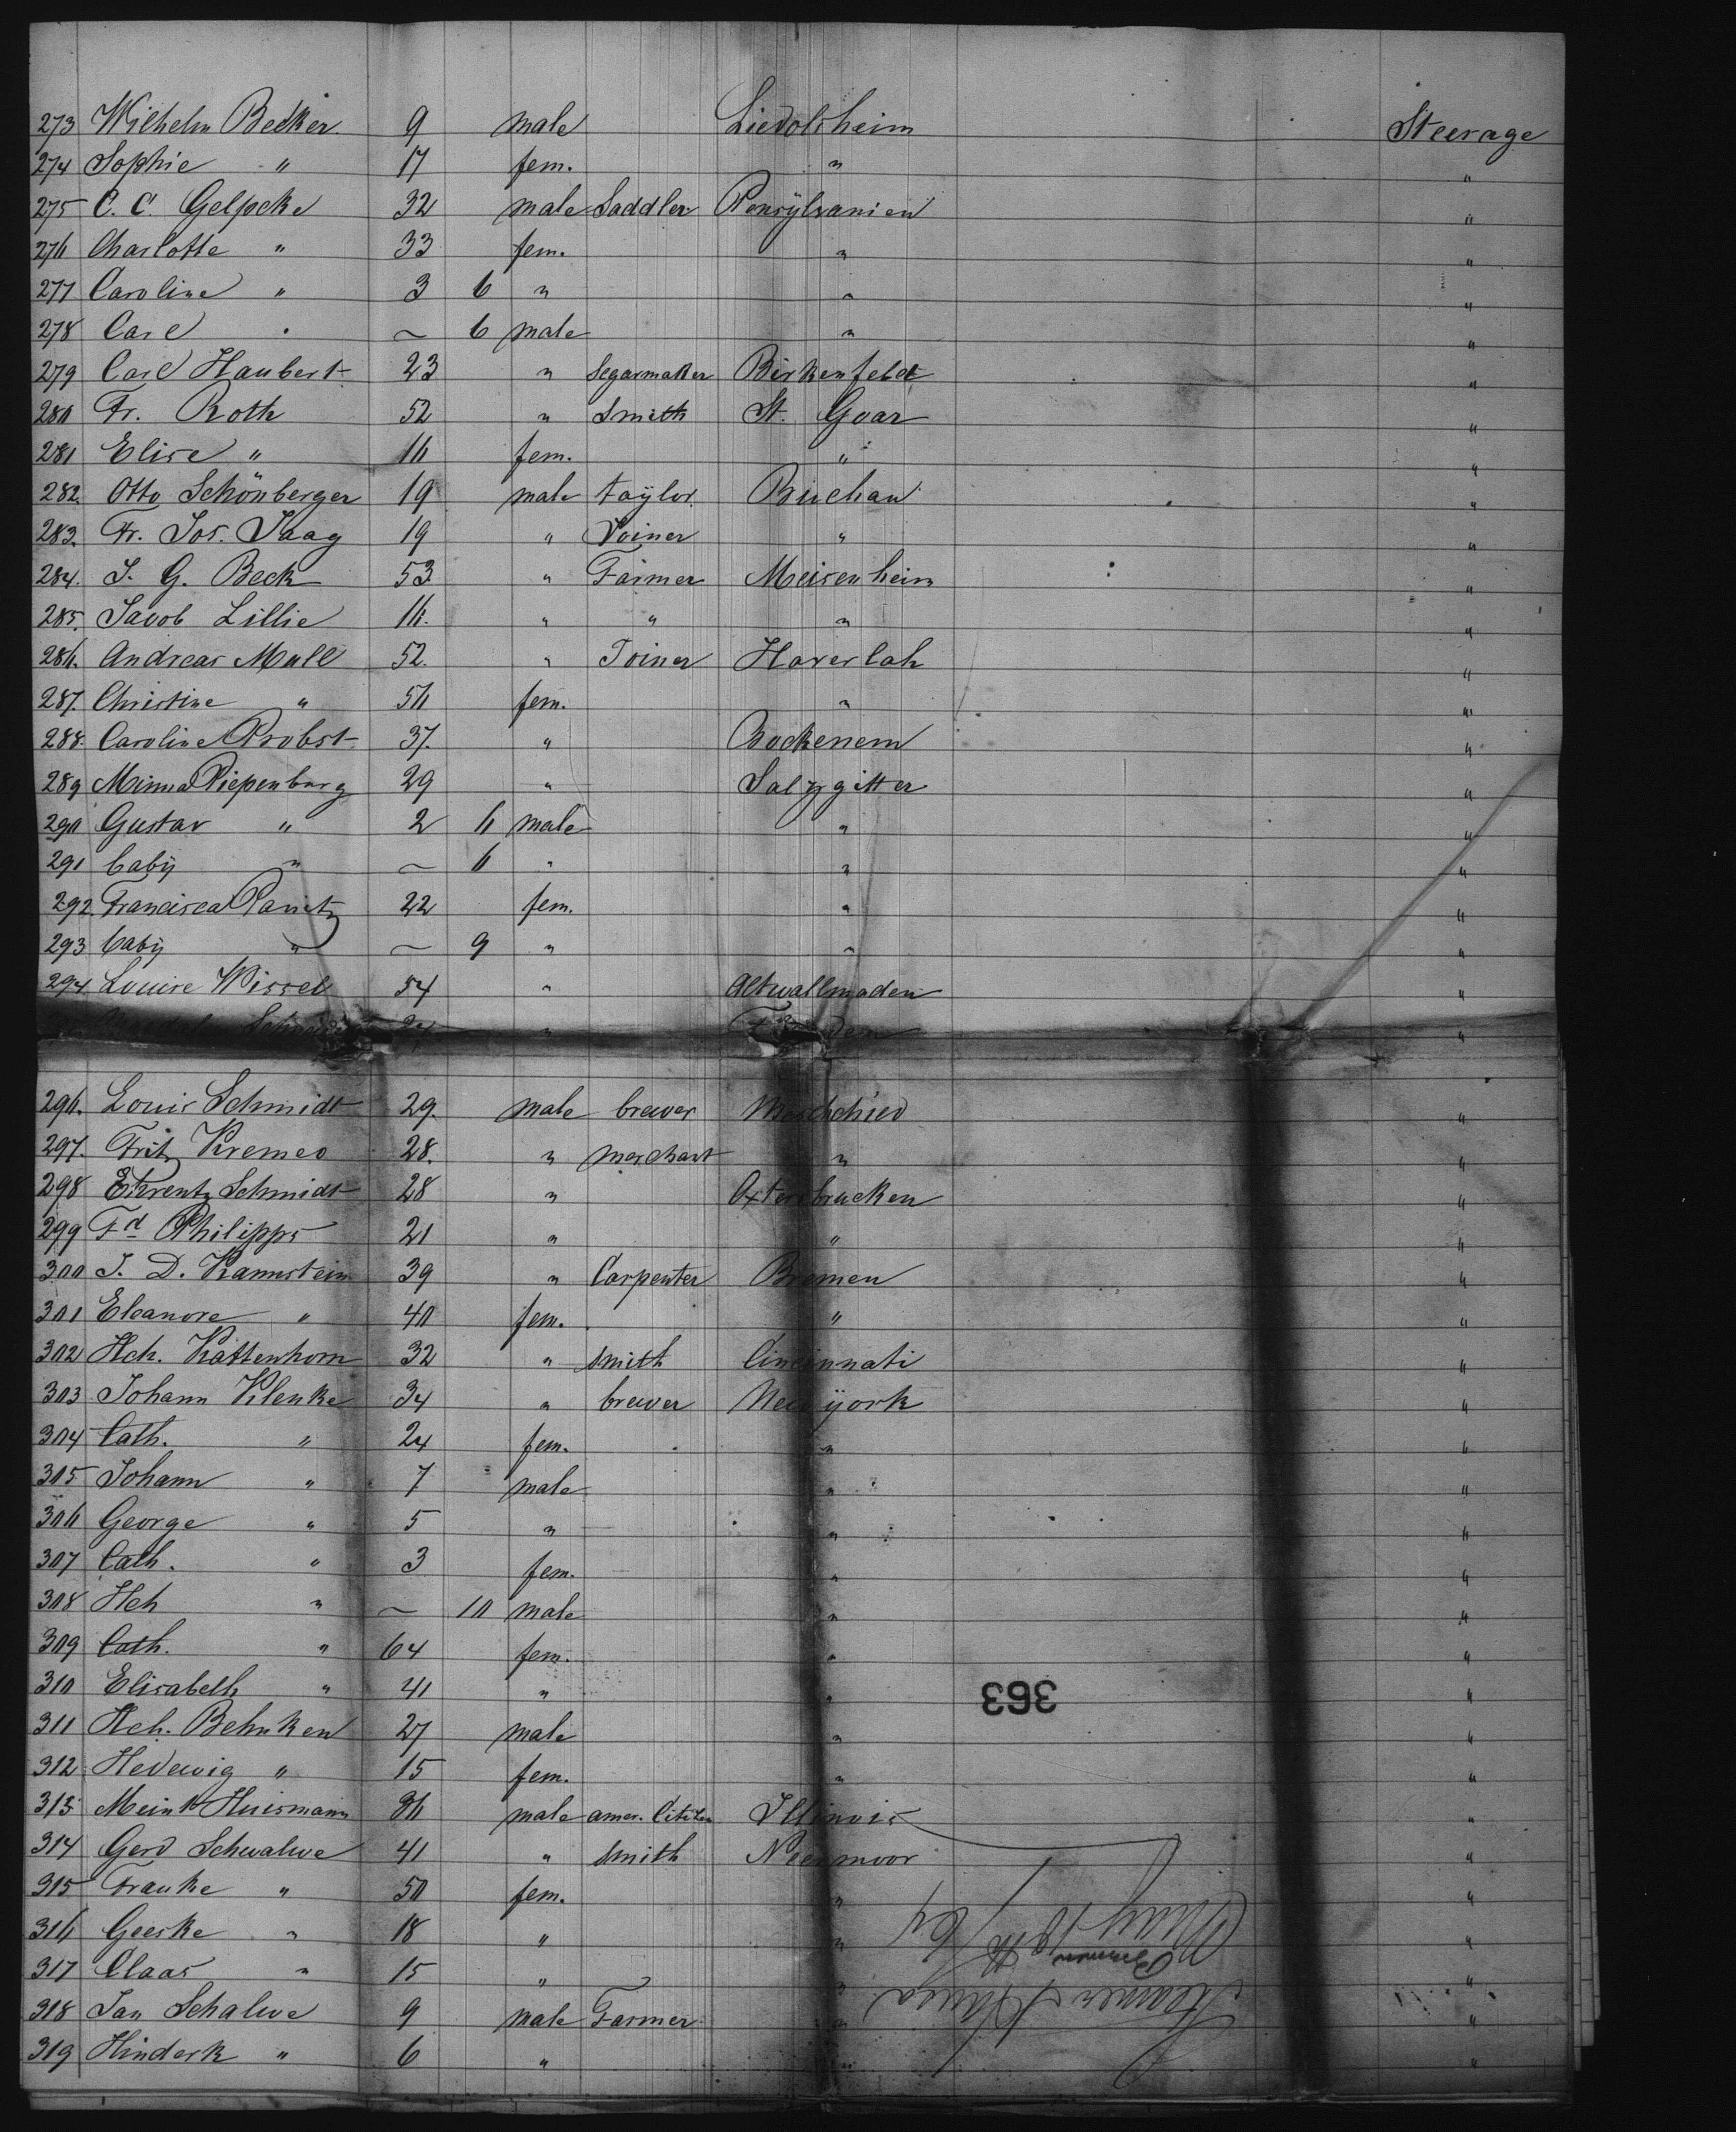 273 Wilhelm Becker 9 male Liedolsheim Steerage
274 Sophie " 17 fem. " "
275 C. C. Gelpcke 32 male Saddler Pensÿlvanien "
276 Charlotte " 33 fem. " "
277 Caroline " 3 6 " " "
278 Carl " ~ 6 male " "
279 Carl Haubert 23 " Segarmaker Birkenfeldt "
280 Fr. Roth 52 " Smith St. Goar "
281 Elise " 16 fem. " "
282. Otto Schönberger 19 male taÿlor Buchau "
283. Fr. Jos. Jaag 19 " Joiner " "
284. J. G. Beck 53 " Farmer Meisenheim "
285. Jacob Lillie 16. " " " "
286. Andreas Mull 52. " Joiner Haverlah "
287. Christine " 56 fem. " "
288. Caroline Probst 37. " Bockenem "
289 Minna Piepenburg 29 " Salzgitter "
290 Gustav " 2 6 male " "
291 baby " ~ 6 " " "
292. Francisca 22 fem. " "
293 baby " ~ 9 " " "
294 Louise Wissel 54 " Altwallmoden "
"  "
296. Louis Schmidt 29. male brewer "
297. Fritz Kremeo 28. " merchant " "
298 Schmidt 28 " "
299 Fd Philipps 21 " " "
300 J. D. Kamstein 39 " Carpenter Bremen "
301 Eleanore " 40 fem. " "
302 Hch. Kattenhorn 32 " smith Cincinnati "
303 Johann Klenke 34 " brewer New ÿork "
304 Cath. " 24 fem. " "
305 Johann " 7 male " "
306 George " 5 " " "
307 Cath. " 3 fem. " "
308 Hch " ~ 10 male " "
309 Cath. " 64 fem. " "
310 Elisabeth " 41 " " "
363
311 Hch. Behnken 27 male " "
312 Hedewig " 15 fem. " "
313 Meint Huismann 36 male amer. Citizen Illinois "
314 Gerd Schwalwe 41 " smith Neermoor "
315 Frauke " 50 fem. " "
316 Geeske " 18 " " "
317 Claas " 15 " " "
318 Jan Schalwe 9 male Farmer " "
319 Hinderk " 6 " " "
Steamer Hansa
Bremen
May 18th / 64